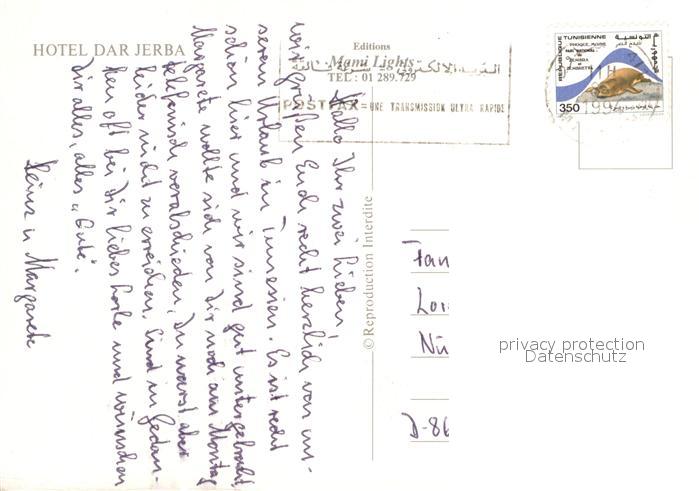 HOTEL DAR JERBA
Editions
Mami Lights
TEL : 01 289.729
البريد الالكتروني = سرعة فائقة
POSTFAX = UNE TRANSMISSION ULTRA RAPIDE
REPUBLIQUE TUNISIENNE
الجمهورية التونسية
PHOQUE MOINE
PARC NATIONAL
DE ZEMBRA
ET ZEMBRETTA
350
1994
© Reproduction Interdite
Hallo Ihr zwei Lieben,
wir grüßen Euch recht herzlich von un-
serem Urlaub in Tunesien. Es ist recht
schön hier und wir sind gut untergebracht.
Margarete wollte sich von Dir noch am Montag
telefonisch verabschieden, Du warst aber
leider nicht zu erreichen. Sind in Gedan-
ken oft bei Dir liebes und wünschen
Dir alles, alles "Gute".
Heinz u. Margarete
Fam
Lor
Nü
D-86
privacy protection
Datenschutz